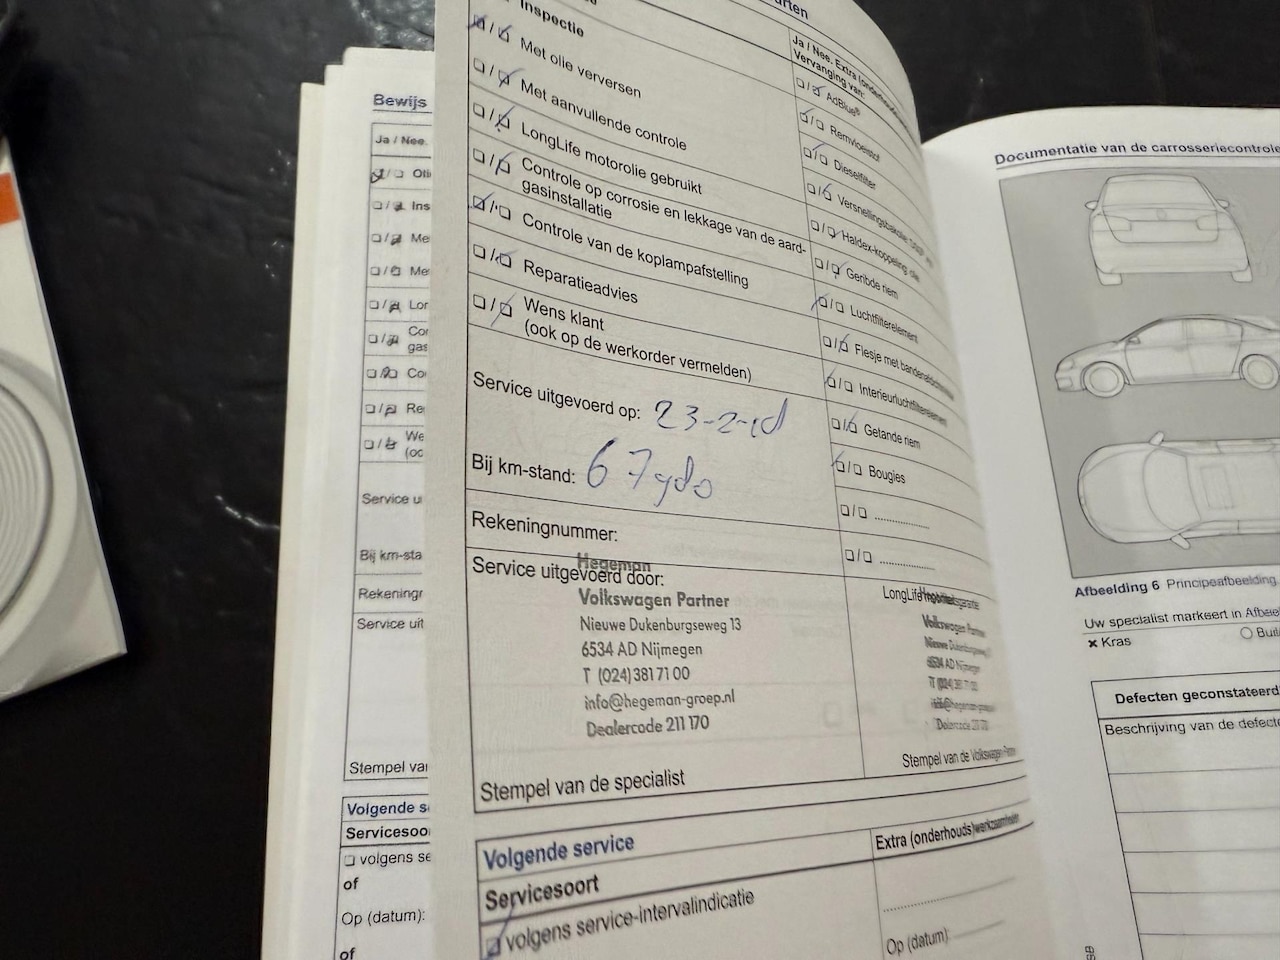 Bewijs
Ja / Nee.
Inspectie
Met olie verversen
Met aanvullende controle
LongLife motorolie gebruikt
Controle op corrosie en lekkage van de aard-
gasinstallatie
Controle van de koplampafstelling
Reparatieadvies
Wens klant
(ook op de werkorder vermelden)
Service uitgevoerd op: 23-2-
Bij km-stand: 67
Rekeningnummer:
Service uitgevoerd door:
Hegeman
Volkswagen Partner
Nieuwe Dukenburgseweg 13
6534 AD Nijmegen
T (024) 381 71 00
info@hegeman-groep.nl
Dealercode 211 170
Stempel van de specialist
Ja / Nee. Extra (onderhouds
Vervanging van:
AdBlue®
Remvloeistof
Dieselfilter
Haldex-koppeling olie
Geribde riem
Luchtfilterelement
Flesje met
Interieurluchtfilterelement
Getande riem
Bougies
....................
....................
Volkswagen Partner
Nieuwe
6534 AD Nijmegen
Stempel van de Volkswagen Partner
Volgende service
Servicesoort
volgens service-intervalindicatie
Extra (onderhouds)werkzaamheden
....................
Op (datum)
Service ui
Bij km-sta
Rekeningr
Service uit
Stempel var
Volgende s
Servicesoo
volgens se
of
Op (datum):
of
Documentatie van de carrosseriecontrole
Afbeelding 6 Principeafbeelding
Uw specialist markeert in Afbee
× Kras
Defecten geconstateerd
Beschrijving van de defecte